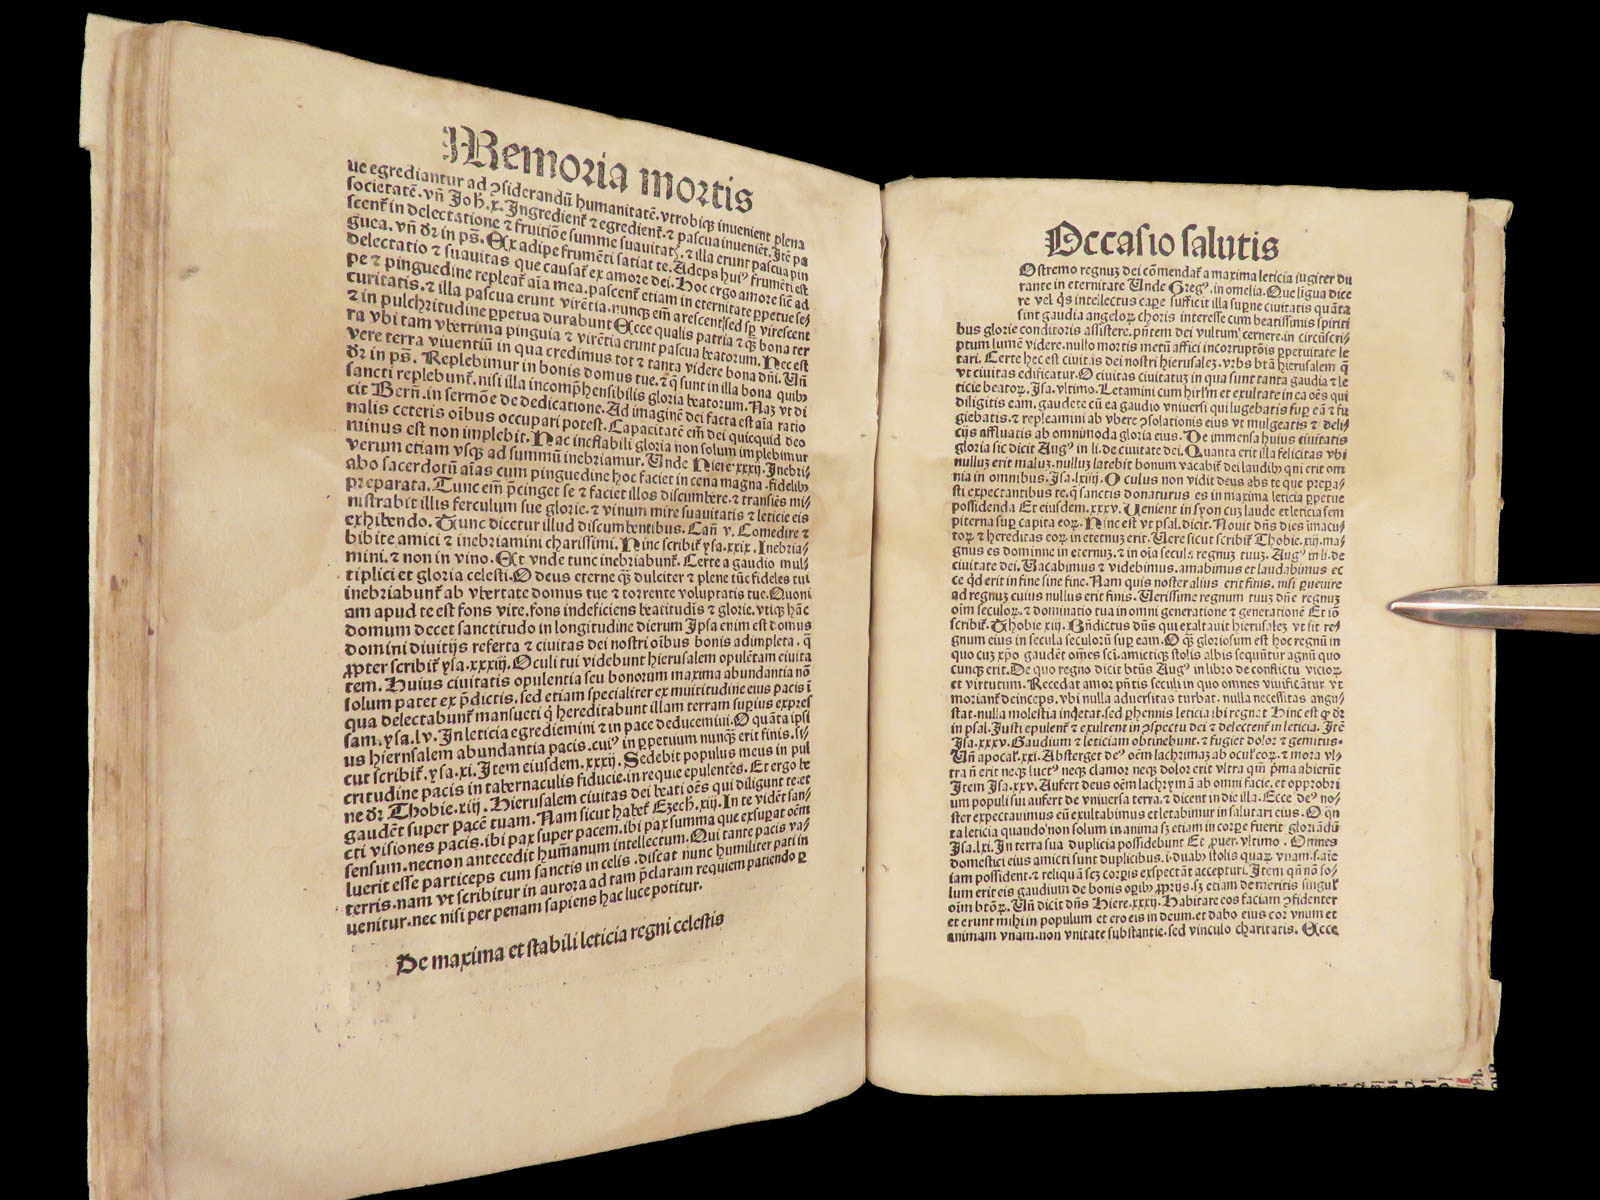 Memoria mortis
ue egrediantur ad ꝯsiderandū humanitatē. vtrobiqꝫ inuenient plena
societatē. vn̄ Joh̄. x. Ingredient̄ ⁊ egredient̄. ⁊ pascua inueniēt. Itē pa
scent̄ in delectatione ⁊ fruitiōe summe suauitatꝭ. ⁊ illa erunt pascua pin
guea. vn̄ dr̄ in ps̄. Ex adipe frumēti satiat te. Adeps huiꝰ frumēti est
delectatio ⁊ suauitas que causat̄ ex amore dei. Hoc ergo amore siē ad
pe ⁊ pinguedine repleat̄ aīa mea. pascent̄ etiam in eternitate ꝑpetue se/
curitatis. ⁊ illa pascua erunt virētia. nunqꝫ em̄ arescent sed sꝑ virescent
⁊ in pulchritudine ꝑpetua durabunt Ecce qualis patria ⁊ qꝫ bona ter
ra vbi tam vberrima pinguia ⁊ virētia erunt pascua beatorum. Nec est
vere terra viuentiū in qua credimus tot ⁊ tanta videre bona dn̄i. Un̄
dr̄ in ps̄. Replebimur in bonis domus tue. ⁊ q̄ sunt in illa bona quibꝰ
sancti replebunt̄. nisi illa incomp̄hensibilis gloria beatorum. Naꝫ vt di
cit Bern̄. in sermōe de dedicatione. Ad imaginē dei facta est aīa ratio
nalis ceteris oībus occupari potest. Capacitatē em̄ dei quicquid deo
minus est non implebit. Hac ineffabili gloria non solum implebimur
verum etiam vsqꝫ ad summū inebriamur. Unde Hiere. xxxij. Inebri/
abo sacerdotū aīas cum pinguedine hoc faciet in cena magna. fidelibꝰ
preparata. Tunc em̄ p̄cinget se ⁊ faciet illos discumbere. ⁊ transiēs mi/
nistrabit illis ferculum sue glorie. ⁊ vinum mire suauitatis ⁊ leticie eis
exhibendo. Tunc dicetur illud discumbentibus. Can̄ v. Comedire ⁊
bibite amici ⁊ inebriamini charissimi. Hinc scribit̄ ysa. xxix. Inebria/
mini. ⁊ non in vino. Et vnde tunc inebriabunt̄. Certe a gaudio mul/
tiplici et gloria celesti. O deus eterne qꝫ dulciter ⁊ plene tūc fideles tui
inebriabunt̄ ab vbertate domus tue ⁊ torrente voluptatis tue. Quoni
am apud te est fons vite. fons indeficiens beatitudīs ⁊ glorie. vtiqꝫ hāc
domum decet sanctitudo in longitudine dierum Ipsa enim est domus
domini diuitijs referta ⁊ ciuitas dei nostri oībus bonis adimpleta. q̄
ꝓpter scribit̄ ysa. xxxiij. Oculi tui videbunt hierusalem opulētam ciuita
tem. Huius ciuitatis opulentia seu bonorum maxima abundantia nō
solum patet ex p̄dictis. sed etiam specialiter ex multitudine eius pacis ī
qua delectabunt̄ mansueti q̄ hereditabunt illam terram supius expres
sam. ysa. lv. In leticia egrediemini ⁊ in pace deducemini. O quāta ipsi
us hiernsalem abundantia pacis. cuiꝰ in ꝑpetuum nunqꝫ erit finis. si/
cut scribit̄. ysa. xi. Item eiusdem. xxxij. Sedebit populus meus in pul
critudine pacis in tabernaculis fiducie. in requie epulentes. Et ergo be
ne dr̄ Thobie. xiij. Hierusalem ciuitas dei beati oēs qui diligunt te. et
gaudēt super pacē tuam. Nam sicut habet̄ Ezech. xiij. In te vidēt san/
cti visiones pacis. ibi pax super pacem. ibi pax summa que exsupat oēm
sensum. necnon antecedit humanum intellectum. Qui tante pacis va/
luerit esse particeps cum sanctis in celis. discat nunc humiliter pati in
terris. nam vt scribitur in aurora ad tam p̄claram requiem patiendo ꝑ
uenitur. nec nisi per penam sapiens hac luce potitur.
De maxima et stabili leticia regni celestis
Occasio salutis
Ostremo regnuꝫ dei cōmendat̄ a maxima leticia iugiter du
rante in eternitate Unde Gregꝰ. in omelia. Que ligua dice
re vel q̄s intellectus capere sufficit illa supne ciuitatis quāta
sint gaudia angeloꝝ choris interesse cum beatissimis spiriti
bus glorie conditoris assistere. pn̄tem dei vultum cernere. in circūscri/
ptum lumē videre. nullo mortis metū affici incorruptōis ꝑpetuitate le
tari. Certe hec est ciuitas dei nostri hierusaleꝫ. vrbs btā hierusalem q̄
vt ciuitas edificatur. O ciuitas ciuitatuꝫ in qua sunt tanta gaudia ⁊ le
ticie beatoꝝ. Jsa. vltimo. Letamini cum hirlm̄ et exultate in ea oēs qui
diligitis eam. gaudete cū ea gaudio vniuersi qui lugebatis suꝑ eā ⁊ fu
giebatis. ⁊ repleamini ab vbere ꝯsolationis eius vt mulgeatis ⁊ deli/
cijs affluatis ab omnimoda gloria eius. De immensa huius ciuitatis
gloria sic dicit Augꝰ in li. de ciuitate dei. Quanta erit illa felicitas vbi
nulluꝫ erit maluꝫ. nulluꝫ latebit bonum vacabit̄ dei laudibꝰ qui erit om
nia in omnibus. Jsa. lxiiij. Oculus non vidit deus abs te que prepa/
sti expectantibus te. q̄ sanctis donaturus es in maxima leticia ꝑpetue
possidenda Et eiusdem. xxxv. Uenient in syon cuꝫ laude et leticia sem
piterna suꝑ capita eoꝝ. Hinc est vt psal. dicit. Nouit dn̄s dies īmacu/
toꝝ ⁊ hereditas eoꝝ in eternuꝫ erit. Uere sicut scribit̄ Thobie. xiij. ma/
gnus es domine in eternuꝫ. ⁊ in oīa secula regnuꝫ tuuꝫ. Augꝰ in li. de
ciuitate dei. Uacabimus ⁊ videbimus. amabimus et laudabimus ec
ce qd̄ erit in fine sine fine. Nam quis noster alius erit finis. nisi ꝑuenire
ad regnuꝫ cuius nullus erit finis. Uerissime regnum tuuꝫ dn̄e regnuꝫ
oīm seculoꝝ. ⁊ dominatio tua in omni generatione ⁊ generationē Et iō
scribit̄. Thobie xiij. Bn̄dictus dn̄s qui exaltauit hierusaleꝫ vt sit re/
gnum eius in secula seculorū suꝑ eam. O qꝫ gloriosum est hoc regnū in
quo cuꝫ xp̄o gaudēt oēs sc̄i. amictiqꝫ stolis albis sequūtur agnū quo
cunqꝫ erit. De quo regno dicit btūs Augꝰ in libro de conflictu vicioꝝ
et virtutum. Recedat amor pn̄tis seculi in quo omnes viuificātur vt
moriant̄ deinceps. vbi nulla aduersitas turbat. nulla necessitas angu/
stat. nulla molestia inq̄etat. sed ꝑhennis leticia ibi regnat Hinc est qꝫ dr̄
in psal. Justi epulent̄ ⁊ exultent in ꝯspectu dei ⁊ delectent̄ in leticia. Itē
Jsa. xxxv. Gaudium ⁊ leticiam obtinebunt. ⁊ fugiet dolor ⁊ gemitus.
Un̄ apocal̄. xxi. Absterget deꝰ oēm lachrimaꝫ ab ocul̄ eoꝝ. ⁊ mors vl/
tra n̄ erit neqꝫ luctꝰ neqꝫ clamor neqꝫ dolor erit vltra qm̄ p̄ma abierūt
Item Jsa. xxv. Aufert deus oēm lachrymā ab omni facie. et opprobri
um populi sui aufert de vniuersa terra. ⁊ dicent in die illa. Ecce deꝰ no/
ster expectauimus eū exultabimus et letabimur in salutari eius. O qn̄
ta leticia quando non solum in anima sꝫ etiam in corꝑe fuerit gloriādū
Jsa. lxi. In terra sua duplicia possidebunt Et ꝓuer. vltimo. Omnes
domestici eius amicti sunt duplicibus. i. duabꝰ stolis quaꝝ vnam. s. aīe
iam possident. ⁊ reliquā seꝫ corꝑis exspectāt accepturi. Item qn̄ nō so/
lum erit eis gaudium de bonis opibꝰ ꝓprijs. sꝫ etiam de meritis singul̄
oīm btōꝝ. Un̄ dicit dn̄s Hiere. xxxij. Habitare eos faciam ꝯfidenter
et erunt mihi in populum et ero eis in deum. et dabo eius cor vnum et
animam vnam. non vnitate substantie. sed vinculo charitatis. Ecce